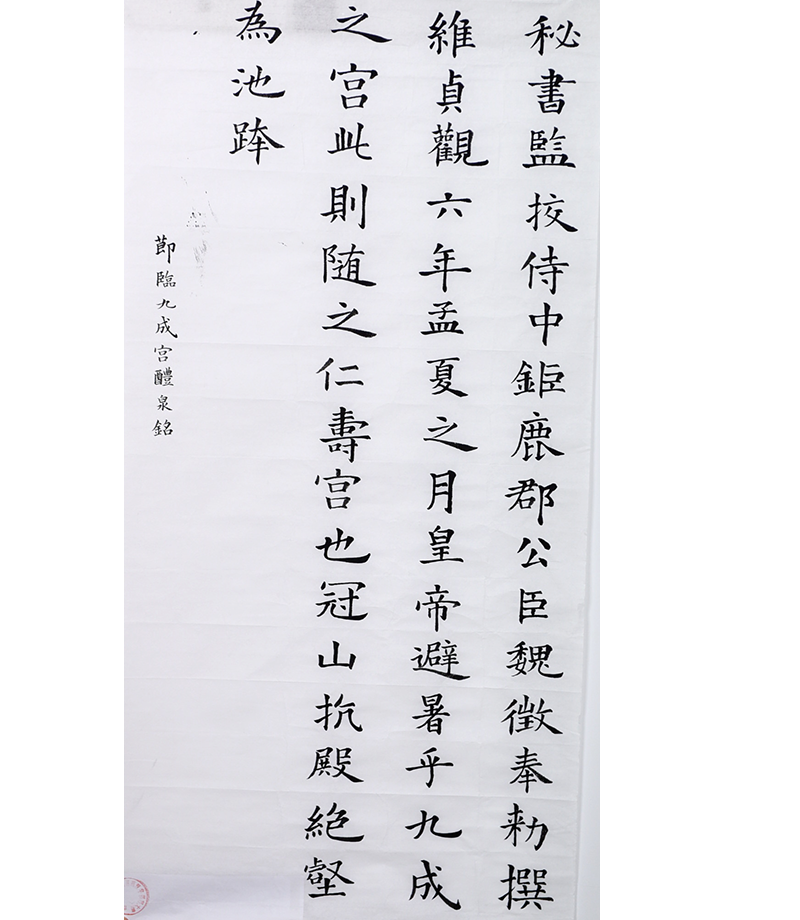 秘書監挍侍中鉅鹿郡公臣魏徵奉勑撰
維貞觀六年孟夏之月皇帝避暑乎九成
之宮此則随之仁壽宮也冠山抗殿絕壑
為池跨
節臨九成宮醴泉銘